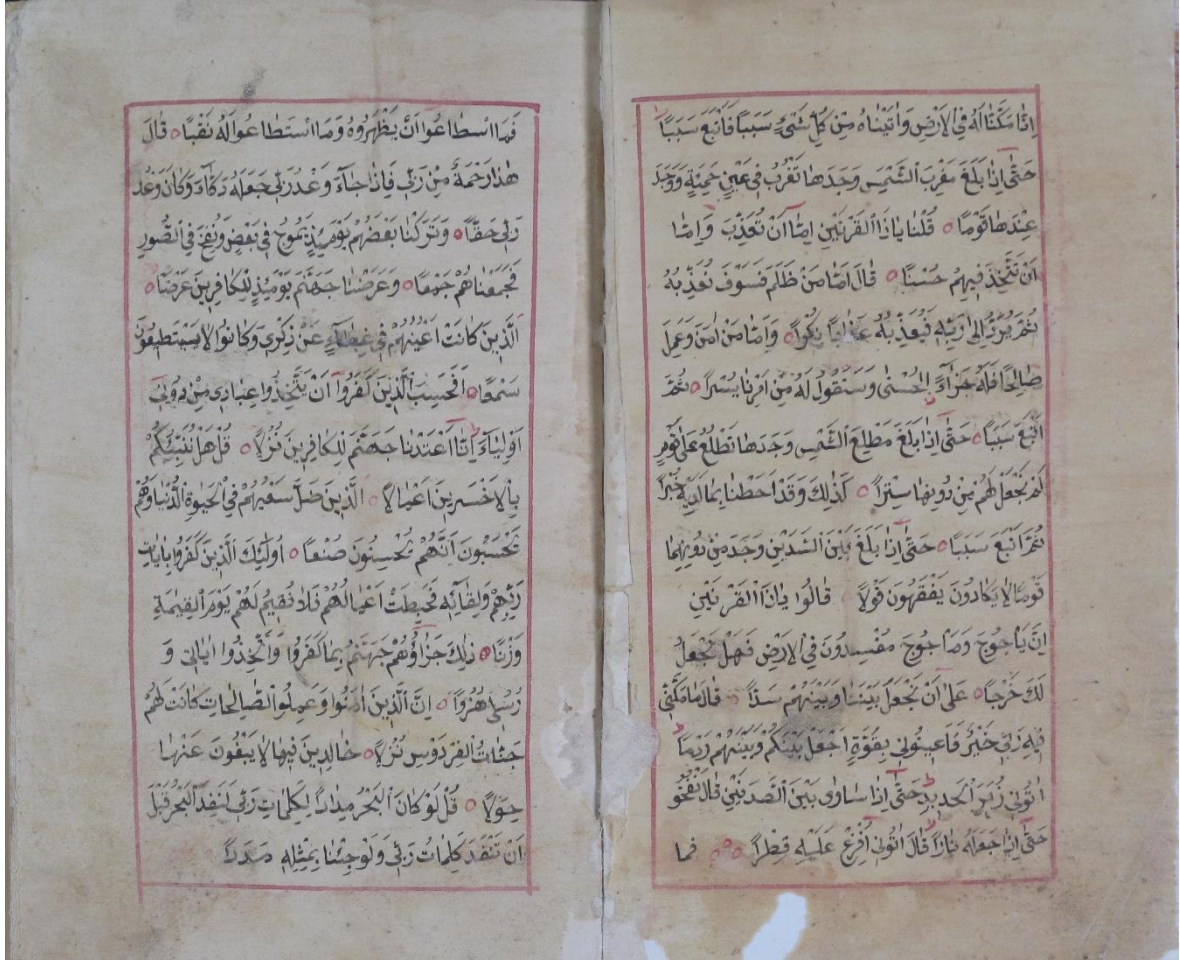 اِنَّا مَكَّنَّا لَهُ فِي الْاَرْضِ وَاٰتَيْنَاهُ مِنْ كُلِّ شَيْءٍ سَبَبًا فَاَتْبَعَ سَبَبًا
حَتّٰى اِذَا بَلَغَ مَغْرِبَ الشَّمْسِ وَجَدَهَا تَغْرُبُ فِي عَيْنٍ حَمِئَةٍ وَوَجَدَ
عِنْدَهَا قَوْمًا ۝ قُلْنَا يَاذَا الْقَرْنَيْنِ اِمَّا اَنْ تُعَذِّبَ وَاِمَّا
اَنْ تَتَّخِذَ فِيهِمْ حُسْنًا ۝ قَالَ اَمَّا مَنْ ظَلَمَ فَسَوْفَ نُعَذِّبُهُ
ثُمَّ يُرَدُّ اِلٰى رَبِّهِ فَيُعَذِّبُهُ عَذَابًا نُكْرًا ۝ وَاَمَّا مَنْ اٰمَنَ وَعَمِلَ
صَالِحًا فَلَهُ جَزَاءً الْحُسْنٰى وَسَنَقُولُ لَهُ مِنْ اَمْرِنَا يُسْرًا ۝ ثُمَّ
اَتْبَعَ سَبَبًا ۝ حَتّٰى اِذَا بَلَغَ مَطْلِعَ الشَّمْسِ وَجَدَهَا تَطْلُعُ عَلٰى قَوْمٍ
لَمْ نَجْعَلْ لَهُمْ مِنْ دُونِهَا سِتْرًا ۝ كَذٰلِكَ وَقَدْ اَحَطْنَا بِمَا لَدَيْهِ خُبْرًا
ثُمَّ اَتْبَعَ سَبَبًا ۝ حَتّٰى اِذَا بَلَغَ بَيْنَ السَّدَّيْنِ وَجَدَ مِنْ دُونِهِمَا
قَوْمًا لَا يَكَادُونَ يَفْقَهُونَ قَوْلًا ۝ قَالُوا يَاذَا الْقَرْنَيْنِ
اِنَّ يَاْجُوجَ وَمَاْجُوجَ مُفْسِدُونَ فِي الْاَرْضِ فَهَلْ نَجْعَلُ
لَكَ خَرْجًا ۝ عَلٰى اَنْ تَجْعَلَ بَيْنَنَا وَبَيْنَهُمْ سَدًّا ۝ قَالَ مَا مَكَّنِّي
فِيهِ رَبِّي خَيْرٌ فَاَعِينُونِي بِقُوَّةٍ اَجْعَلْ بَيْنَكُمْ وَبَيْنَهُمْ رَدْمًا
اٰتُونِي زُبَرَ الْحَدِيدِ حَتّٰى اِذَا سَاوٰى بَيْنَ الصَّدَفَيْنِ قَالَ انْفُخُو
حَتّٰى اِذَا جَعَلَهُ نَارًا قَالَ اٰتُونِي اُفْرِغْ عَلَيْهِ قِطْرًا ۝ فما
فَمَا اسْطَاعُوا اَنْ يَظْهَرُوهُ وَمَا اسْتَطَاعُوا لَهُ نَقْبًا ۝ قَالَ
هٰذَا رَحْمَةٌ مِنْ رَبِّي فَاِذَا جَاءَ وَعْدُ رَبِّي جَعَلَهُ دَكَّاءَ وَكَانَ وَعْدُ
رَبِّي حَقًّا ۝ وَتَرَكْنَا بَعْضَهُمْ يَوْمَئِذٍ يَمُوجُ فِي بَعْضٍ وَنُفِخَ فِي الصُّورِ
فَجَمَعْنَاهُمْ جَمْعًا ۝ وَعَرَضْنَا جَهَنَّمَ يَوْمَئِذٍ لِلْكَافِرِينَ عَرْضًا ۝
الَّذِينَ كَانَتْ اَعْيُنُهُمْ فِي غِطَاءٍ عَنْ ذِكْرِي وَكَانُوا لَا يَسْتَطِيعُونَ
سَمْعًا ۝ اَفَحَسِبَ الَّذِينَ كَفَرُوا اَنْ يَتَّخِذُوا عِبَادِي مِنْ دُونِي
اَوْلِيَاءَ اِنَّا اَعْتَدْنَا جَهَنَّمَ لِلْكَافِرِينَ نُزُلًا ۝ قُلْ هَلْ نُنَبِّئُكُمْ
بِالْاَخْسَرِينَ اَعْمَالًا ۝ الَّذِينَ ضَلَّ سَعْيُهُمْ فِي الْحَيٰوةِ الدُّنْيَا وَهُمْ
يَحْسَبُونَ اَنَّهُمْ يُحْسِنُونَ صُنْعًا ۝ اُولٰئِكَ الَّذِينَ كَفَرُوا بِاٰيَاتِ
رَبِّهِمْ وَلِقَائِهِ فَحَبِطَتْ اَعْمَالُهُمْ فَلَا نُقِيمُ لَهُمْ يَوْمَ الْقِيٰمَةِ
وَزْنًا ۝ ذٰلِكَ جَزَاؤُهُمْ جَهَنَّمُ بِمَا كَفَرُوا وَاتَّخَذُوا اٰيَاتِي وَ
رُسُلِي هُزُوًا ۝ اِنَّ الَّذِينَ اٰمَنُوا وَعَمِلُوا الصَّالِحَاتِ كَانَتْ لَهُمْ
جَنَّاتُ الْفِرْدَوْسِ نُزُلًا ۝ خَالِدِينَ فِيهَا لَا يَبْغُونَ عَنْهَا
حِوَلًا ۝ قُلْ لَوْ كَانَ الْبَحْرُ مِدَادًا لِكَلِمَاتِ رَبِّي لَنَفِدَ الْبَحْرُ قَبْلَ
اَنْ تَنْفَدَ كَلِمَاتُ رَبِّي وَلَوْ جِئْنَا بِمِثْلِهِ مَدَدًا